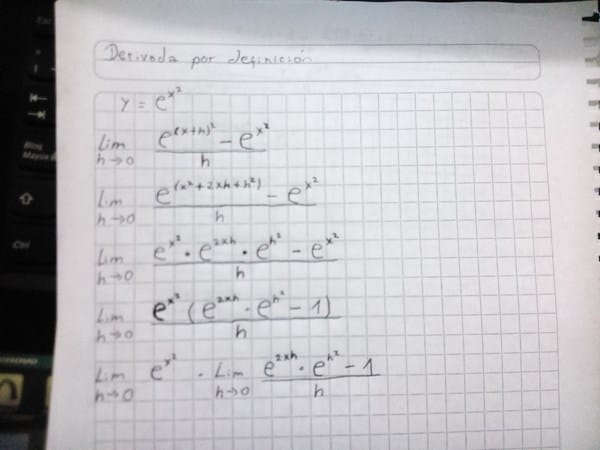 Derivada por definición
y = e^{x²}
Lim h→0 (e^{(x+h)²} - e^{x²}) / h
Lim h→0 (e^{(x²+2xh+h²)} - e^{x²}) / h
Lim h→0 (e^{x²} • e^{2xh} • e^{h²} - e^{x²}) / h
Lim h→0 (e^{x²} (e^{2xh} · e^{h²} - 1)) / h
Lim h→0 e^{x²} · Lim h→0 (e^{2xh} • e^{h²} - 1) / h
Bloq
Mayús
Ctrl